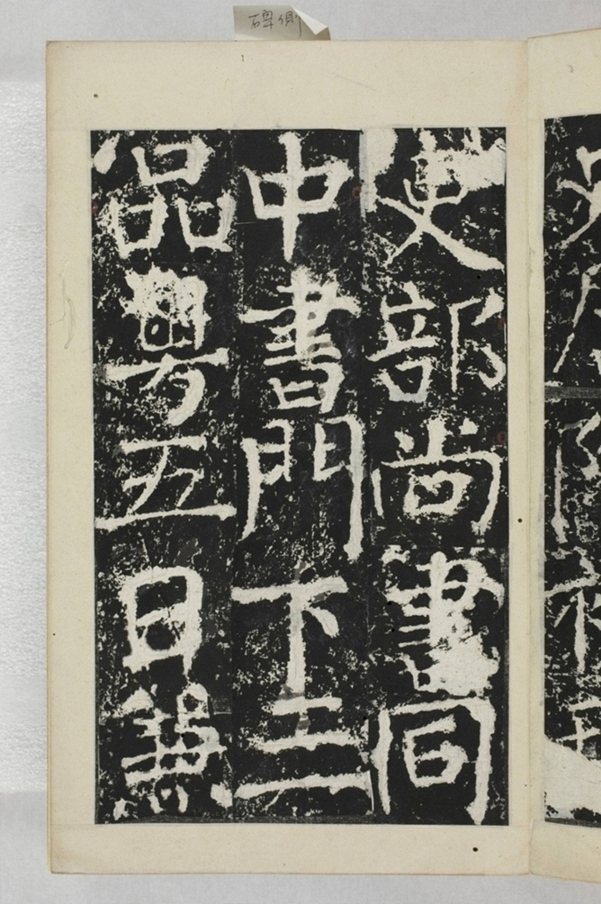 碑側
吏部尚書同
中書門下三
品粤五日兼